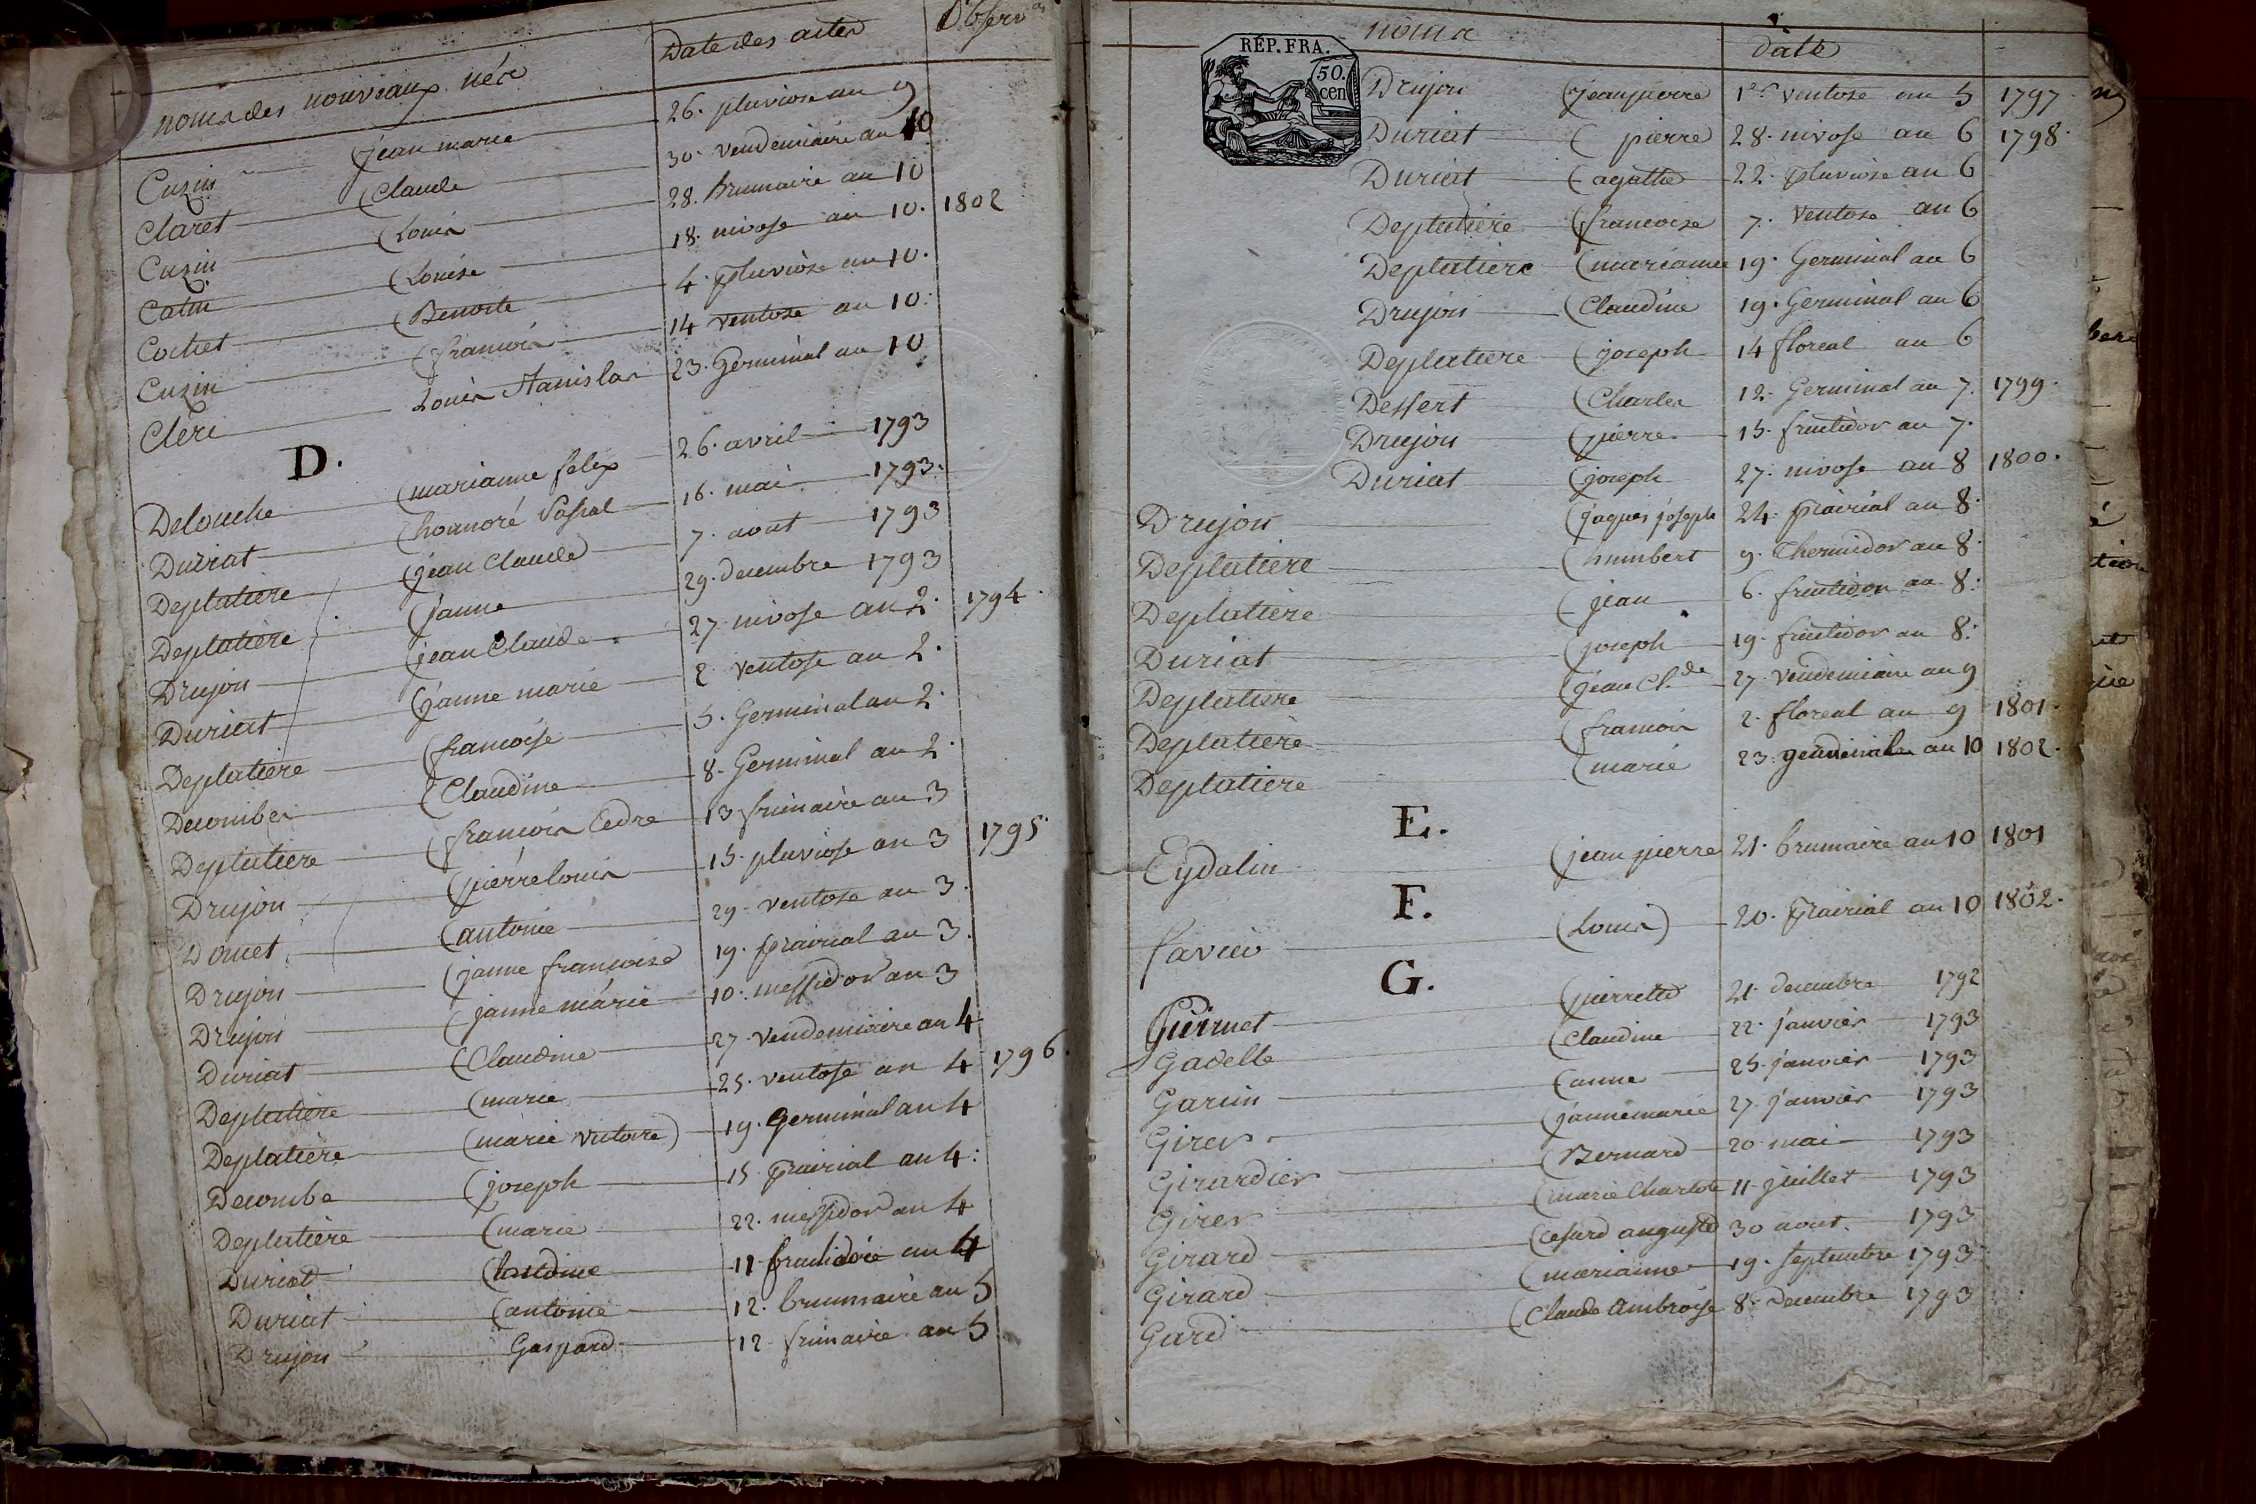 noms des nouveaux nés Date des actes Observ
Cuzin jean marie 26. pluviose an 9
Claret Claude 30. vendemiaire an 10
Cuzin Louis 28. brumaire an 10
Catin Louise 18. nivose an 10. 1802
Cochet Benoite 4. pluviose an 10.
Cuzin francois 14 ventose an 10.
Clere Louis Stanislas 23. Germinal an 10
D.
Delouche marianne felix 26. avril 1793
Duriat honnoré 16. mai 1793.
Deplatiere jean Claude 7. aout 1793
Deplatiere janne 29. decembre 1793
Drujon jean Claude 27. nivose an 2. 1794.
Duriat janne marie 2 ventose an 2.
Deplatiere francoise 5. Germinal an 2.
Decombes Claudine 8. Germinal an 2.
Deplatiere francois 13 frimaire an 3
Drujon pierre louis 15. pluviose an 3 1795
Douet antoine 29. ventose an 3.
Drujon janne francoise 19. prairial an 3.
Drujon janne marie 10. messidor an 3
Duriat Claudine 27. vendemiaire an 4
Deplatiere marie 25. ventose an 4 1796.
Deplatiere marie victoire 19. germinal an 4
Decombe joseph 15 prairial an 4.
Deplatiere marie 22. messidor an 4
Duriat Claudine 11 fructidor an 4
Duriat antoine 12. brumaire an 5
Drujon Gaspard 12. frimaire an 5
noms date
RÉP. FRA.
50.
cen
Drujon jean pierre 1er ventose an 5 1797.
Duriat pierre 28. nivose an 6 1798.
Duriat agathe 22. pluviose an 6
Deplatiere francoise 7. ventose an 6
Deplatiere marianne 19. Germinal an 6
Drujon Claudine 19. Germinal an 6
Deplatiere joseph 14 floreal an 6
Dessert Charles 12. Germinal an 7. 1799.
Drujon pierre 15. fructidor an 7.
Duriat joseph 27. nivose an 8 1800.
Drujon jaques joseph 24. prairial an 8.
Deplatiere humbert 9. thermidor an 8.
Deplatiere jean 6. fructidor an 8.
Duriat joseph 19. fructidor an 8.
Deplatiere jean Cl.de 27. vendemiaire an 9
Deplatiere francois 2. floreal an 9 1801.
Deplatiere marie 23. germinal an 10 1802.
E.
Eydalin jean pierre 21. brumaire an 10 1801
F.
favier Louis 20. prairial an 10 1802.
G.
Guirnet pierrette 21. decembre 1792
Gadelle Claudine 22. janvier 1793
Garin anne 25. janvier 1793
Girer janne marie 27. janvier 1793
Girardier Bernard 20 mai 1793
Girer marie Charlote 11. juillet 1793
Girard auguste 30 aout 1793
Girard marianne 19. septembre 1793
Gard Claude ambroise 8. decembre 1793